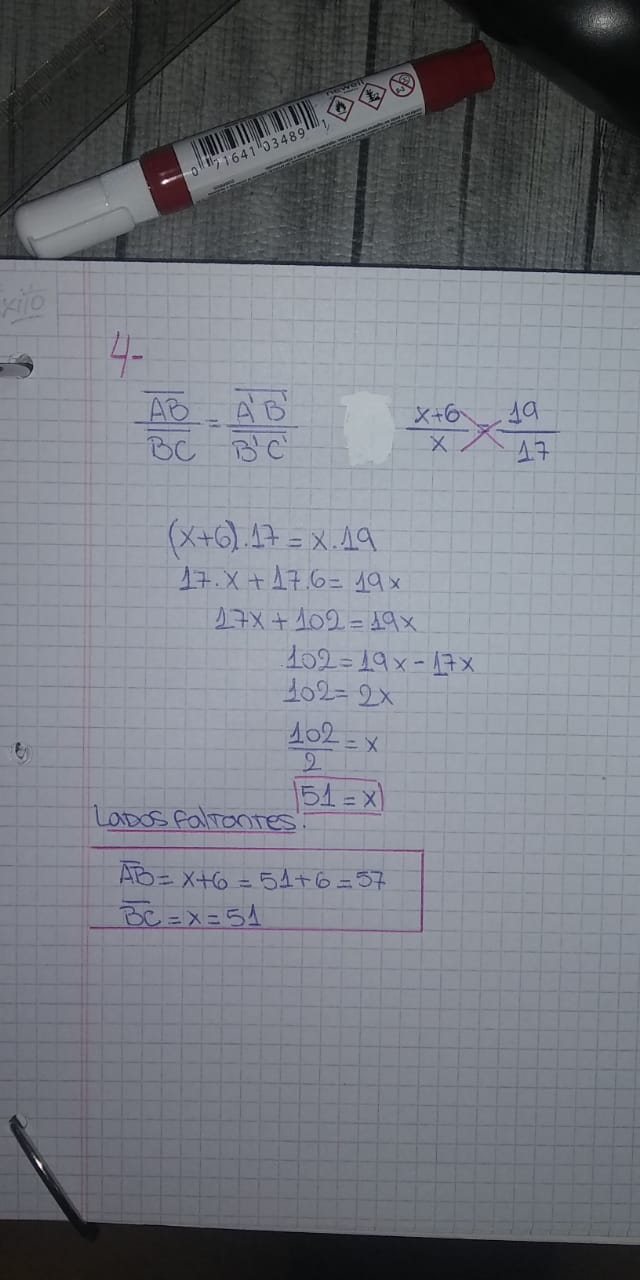 newell
0 71641 03489 1
xito
4-
AB/BC = A'B'/B'C'
x+6/x = 19/17
(x+6).17 = x.19
17.x + 17.6 = 19x
17x + 102 = 19x
102 = 19x - 17x
102 = 2x
102/2 = x
51 = x
Lados faltantes.
AB = x+6 = 51+6 = 57
BC = x = 51